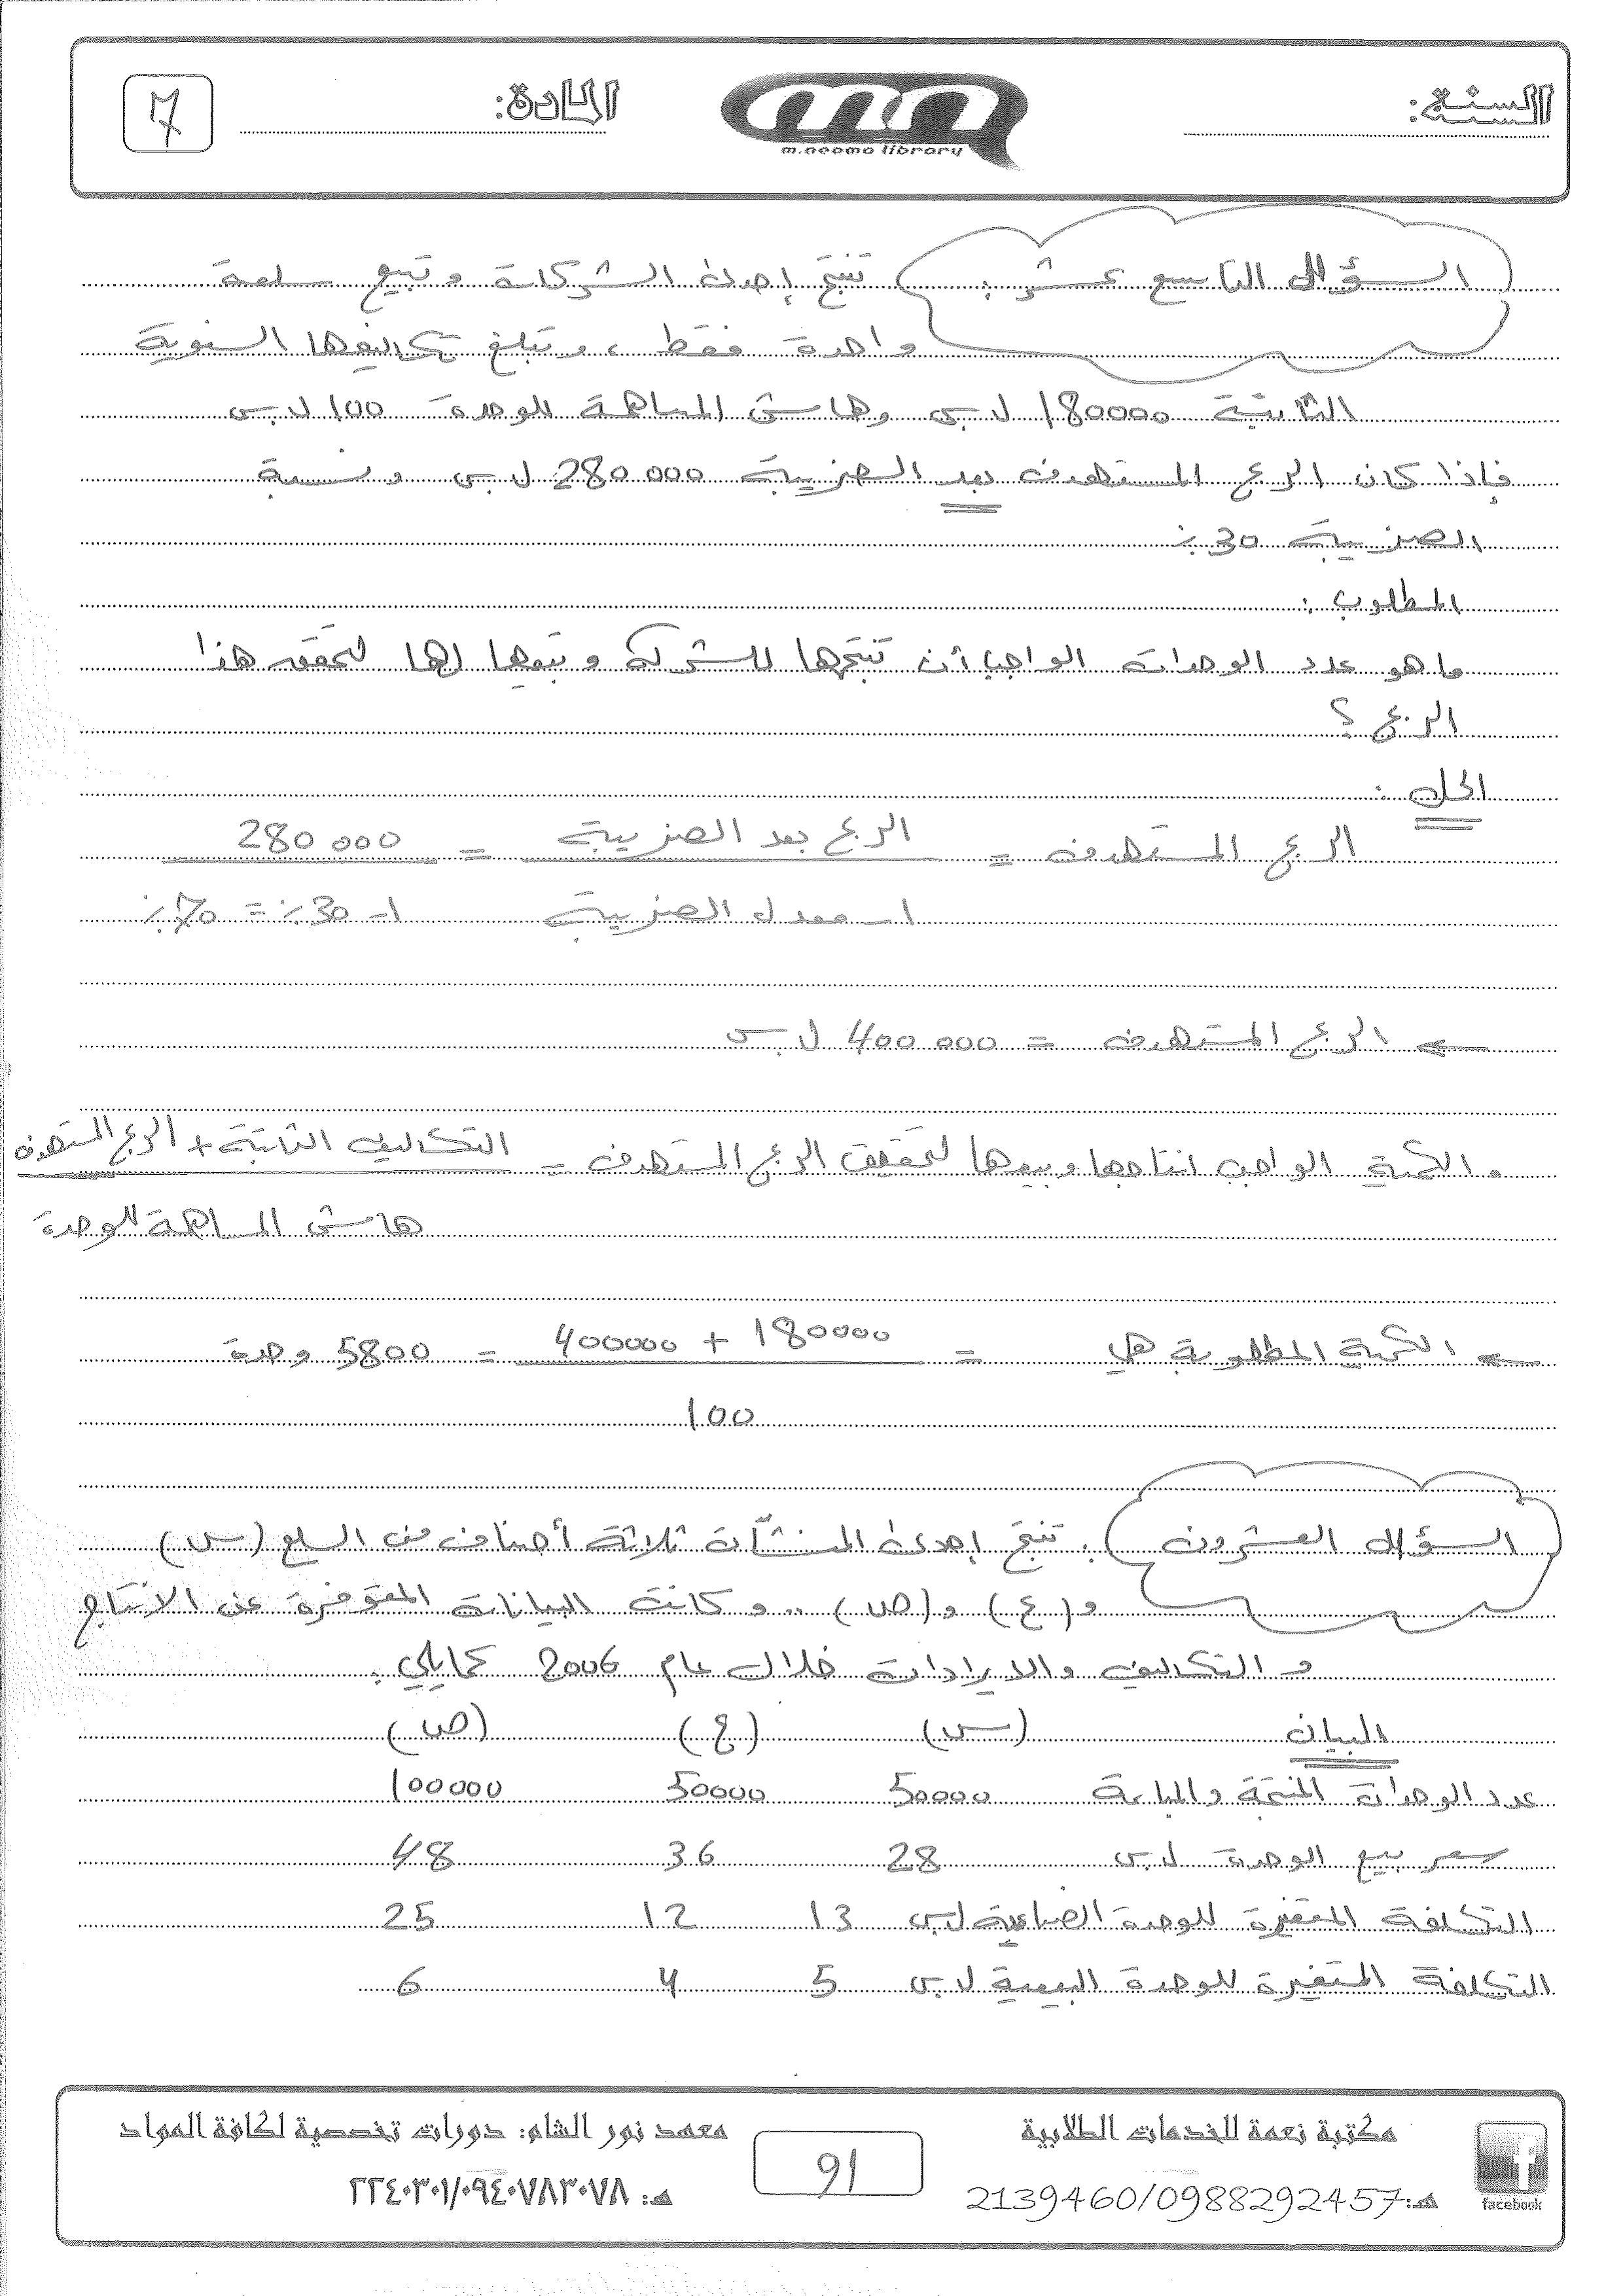 السنة:
m.neama library
المادة:
7
السؤال التاسع عشر: تنتج إحدى الشركات وتبيع سلعة
واحدة فقط، وتبلغ تكاليفها السنوية
الثابتة 180000 ل.س وهامش المساهمة للوحدة 100 ل.س
فإذا كان الربح المستهدف بعد الضريبة 280000 ل.س ونسبة
الضريبة 30٪
المطلوب:
ما هو عدد الوحدات الواجب أن تنتجها الشركة وتبيعها لتحقق هذا
الربح؟
الحل:
الربح المستهدف = الربح بعد الضريبة = 280 000
1 - معدل الضريبة 1 - 30٪ = 70٪
← الربح المستهدف = 400 000 ل.س
و الكمية الواجب انتاجها وبيعها لتحقيق الربح المستهدف = التكاليف الثابتة + الربح المستهدف
هامش المساهمة للوحدة
← الكمية المطلوبة هي = 400000 + 180000 = 5800 وحدة
100
السؤال العشرون: تنتج إحدى المنشآت ثلاثة أصناف من السلع (س)
و(ع) و(ص) .. وكانت البيانات المتوفرة عن الانتاج
و التكاليف والايرادات خلال عام 2006 كمايلي:
البيان (س) (ع) (ص)
عدد الوحدات المنتجة والمباعة 50000 50000 100000
سعر بيع الوحدة ل.س 28 36 48
التكلفة المتغيرة للوحدة الصناعية ل.س 13 12 25
التكلفة المتغيرة للوحدة البيعية ل.س 5 4 6
facebook
مكتبة نعمة للخدمات الطلابية
هـ: 2139460/0988292457
91
معهد نور الشام: دورات تخصصية لكافة المواد
هـ: ٢٢٤٠٣٠١/٠٩٤٠٧٨٣٠٧٨